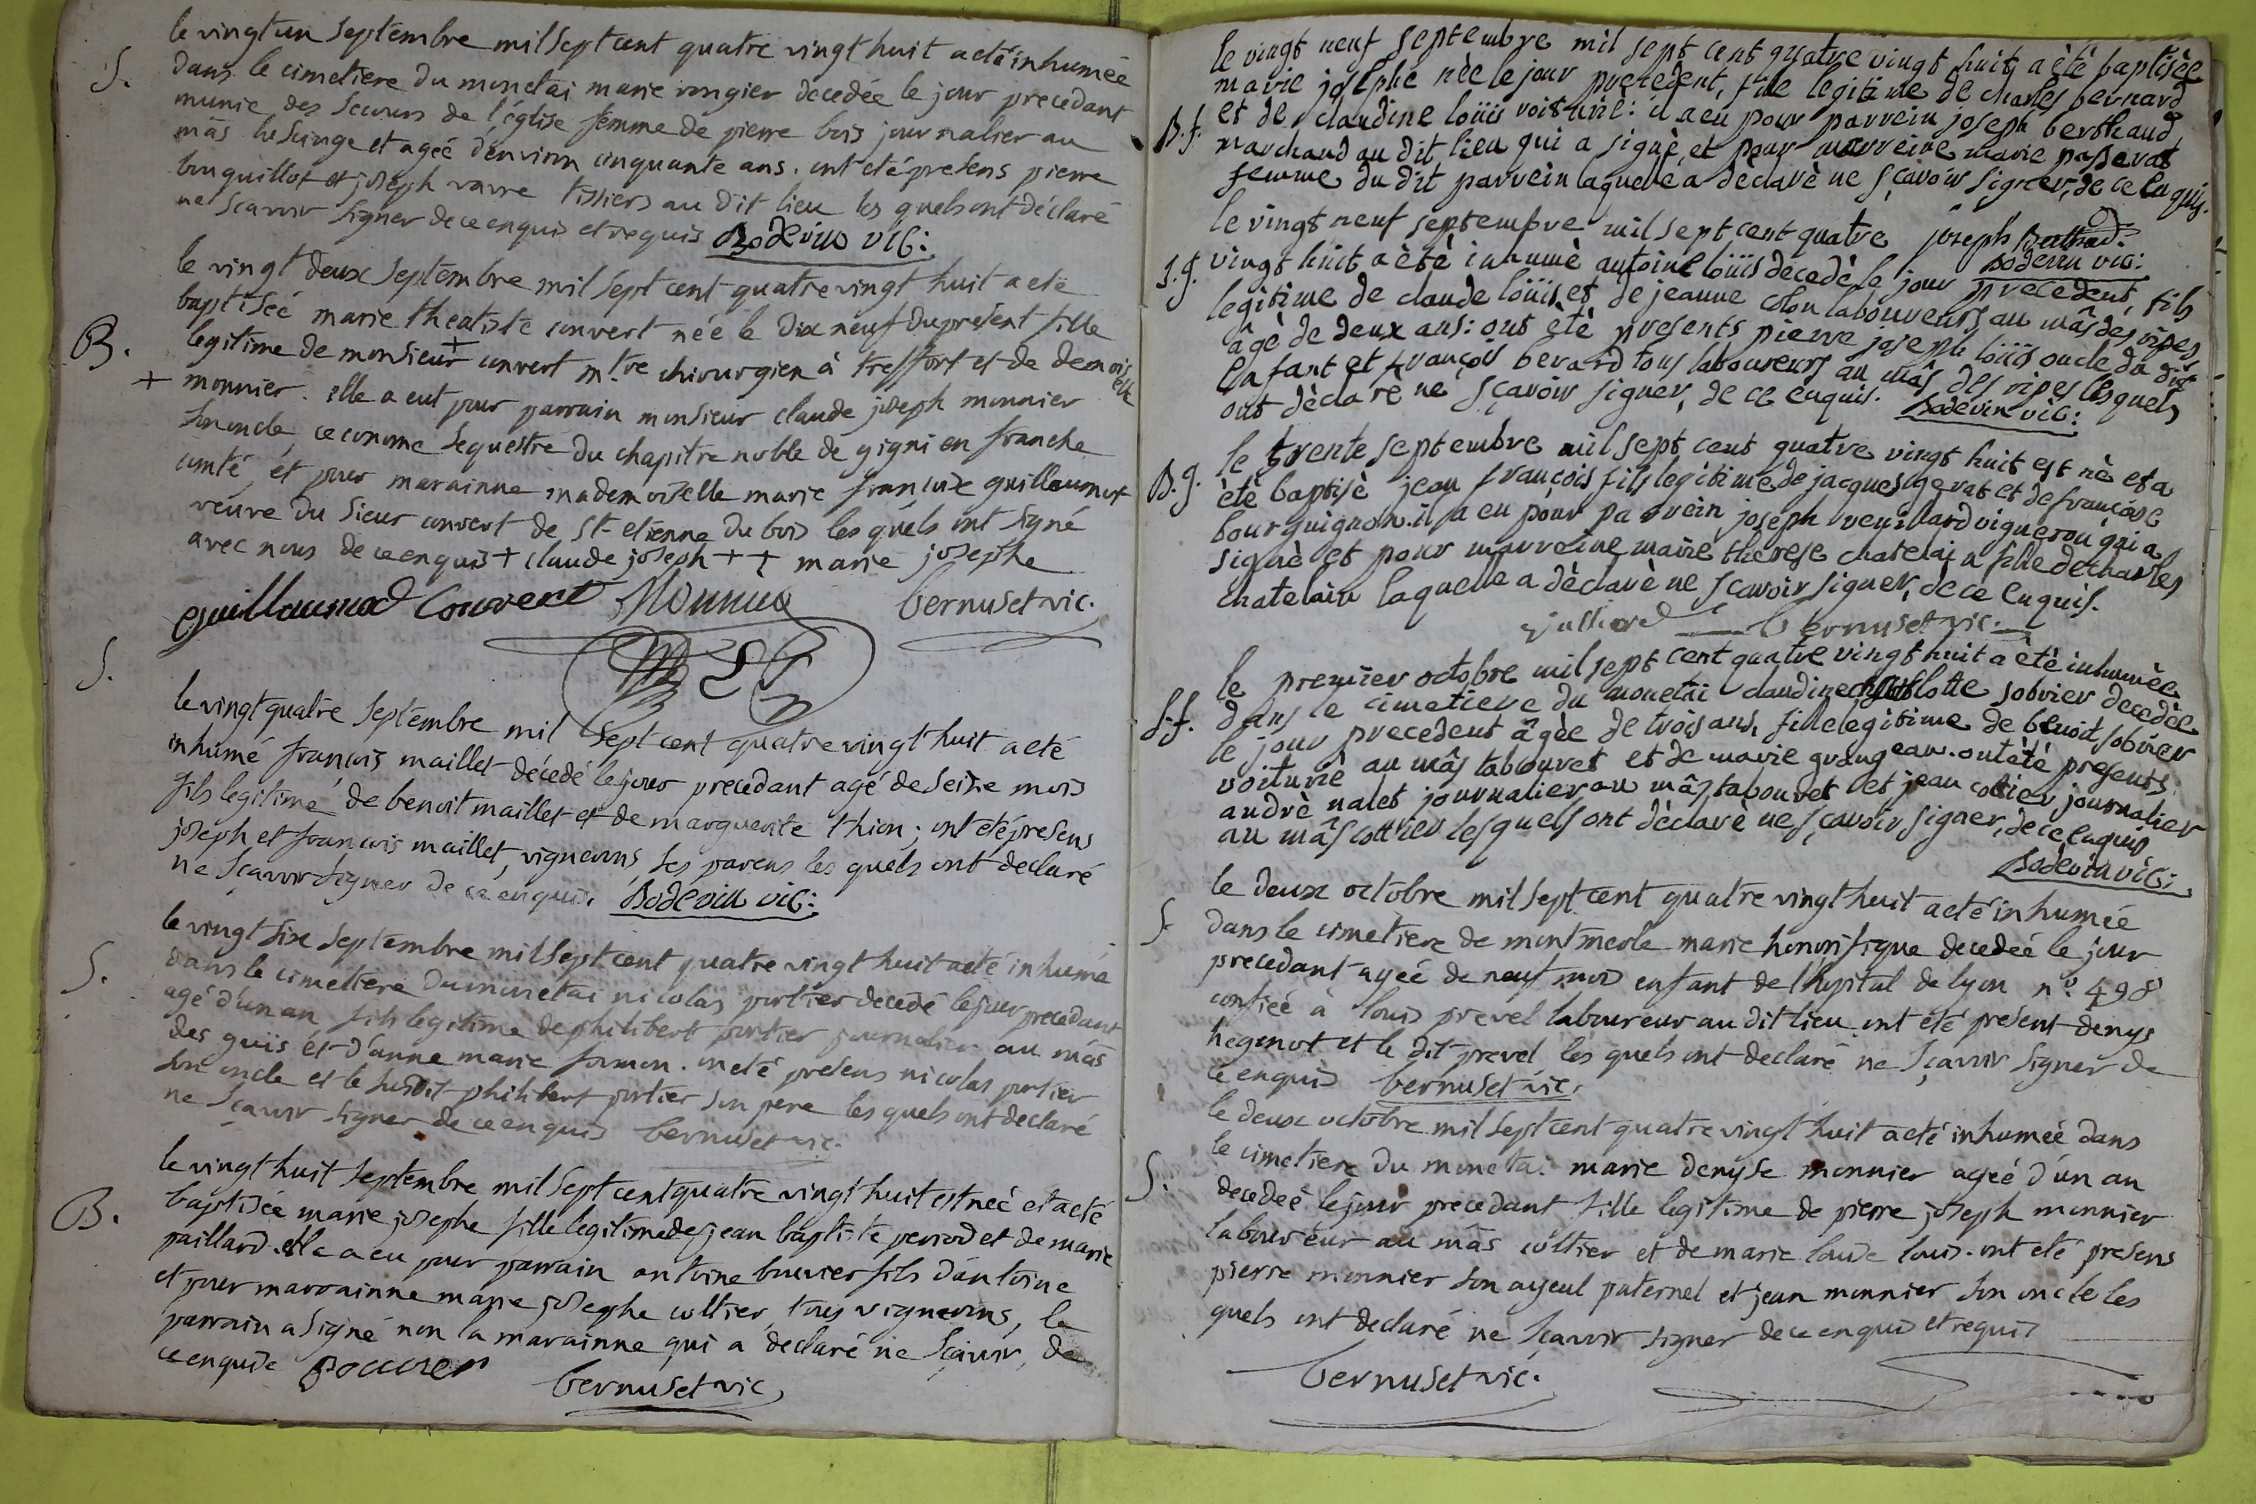 le vingt un septembre mil sept cent quatre vingt huit a eté inhumée
S.
dans le cimetiere du monetai marie rongier decedée le jour precedant
munie des secours de l'église femme de pierre bois journalier au
mâs et agée d'environ cinquante ans. ont eté presens pierre
bouquillot et joseph varre tissiers au dit lieu les quels ont déclaré
ne sçavoir signer de ce enquis et requis Bodevin vic:
le vingt deux septembre mil sept cent quatre vingt huit a eté
baptisée marie theatiste convert née le dix neuf du présent fille
B.
legitime de monsieur + convert m.tre chirurgien à treffort et de demoiselle
+ monnier. elle a eut pour parrain monsieur claude joseph monnier
son oncle, œconome sequestre du chapitre noble de gigni en franche
comté, et pour marainne mademoiselle marie françoise guillaumot
veuve du sieur convert de st etienne du bois les quels ont signé
avec nous de ce enquis + claude joseph + + marie josephe
Guillaumod Convert Monnier bernuset vic.
S.
le vingt quatre septembre mil sept cent quatre vingt huit a eté
inhumé françois maillet décedé le jour precedant agé de seize mois
fils legitime de benoit maillet et de marguerite thion; ont eté presens
joseph et françois maillet, vignerons, ses parens les quels ont declaré
ne sçavoir signer de ce enquis. Bodevin vic:
le vingt six septembre mil sept cent quatre vingt huit a eté inhumé
S.
dans le cimetiere du monetai nicolas portier decedé le jour precedant
agé d'un an fils legitime de philibert portier journalier au mâs
des guis et d'anne marie . ont eté presens nicolas portier
son oncle et le susdit philibert portier son pere les quels ont declaré
ne sçavoir signer de ce enquis bernuset vic.
le vingt huit septembre mil sept cent quatre vingt huit est neé et a eté
B.
baptisée marie josephe fille legitime de jean baptiste period et de marie
paillard. elle a eu pour parrain antoine buvier fils d'antoine
et pour marrainne marie josephe cottier, tous vignerons, le
parrain a signé non la marainne qui a declaré ne sçavoir, de
ce enquise bernuset vic
le vingt neuf septembre mil sept cent quatre vingt huit a été baptisée
marie josephe née le jour precedent, fille legitime de charles bernard
B.f.
et de claudine loüis voiturié: il a eu pour parrein joseph berthaud
marchand au dit lieu qui a signé, et pour marreine marie passerat
femme du dit parrein laquelle a déclaré ne sçavoir signer, de ce enquis.
joseph Berthaud.
Bodevin vic:
le vingt neuf septembre mil sept cent quatre
S.g.
vingt huit a été inhumé antoine loüis decedé le jour precedent, fils
legitime de claude loüis et de jeanne colon laboureurs au mâs des ripes,
âgé de deux ans: ont été presents pierre joseph loüis oncle du dit
enfant et françois berard tous laboureurs au mâs des ripes lesquels
ont déclaré ne sçavoir signer, de ce enquis. Bodevin vic:
le trente septembre mil sept cent quatre vingt huit est né et a
B.g.
été baptisé jean françois fils legitime de jacques gerat et de françoise
bourguignon. il a eu pour parrein joseph veuillard vigneron qui a
signé et pour marreine marie thérese chatelain fille de charles
chatelain laquelle a déclaré ne sçavoir signer, de ce enquis.
bernuset vic.
le premier octobre mil sept cent quatre vingt huit a été inhumée
S.f.
dans le cimetiere du monetai claudine charlotte sobrier decedée
le jour precedent âgée de trois ans, fille legitime de benoit sobrier
voiturié au mâs tabouret et de marie grangeau. ont été presents
andré nalet journalier au mâs tabouret et jean cotier journalier
au mâs cottier lesquels ont déclaré ne sçavoir signer, de ce enquis
Bodevin vic:
le deux octobre mil sept cent quatre vingt huit a eté inhumée
S
dans le cimetiere de montmerle marie honorifique decedeé le jour
precedant ageé de neuf mois enfant de l'hopital de lyon n.o 498
confieé à louis prevel laboureur au dit lieu ont été présent denys
hegenot et le dit prevel les quels ont declaré ne sçavoir signer de
ce enquis bernuset vic.
le deux octobre mil sept cent quatre vingt huit a eté inhumeé dans
le cimetiere du monetai marie denyse monnier ageé d'un an
S.
decedeé le jour precedant fille legitime de pierre joseph monnier
laboureur au mâs cottier et de marie loude louis. ont eté presens
pierre monnier son ayeul paternel et jean monnier son oncle les
quels ont declaré ne sçavoir signer de ce enquis et requis
bernuset vic.